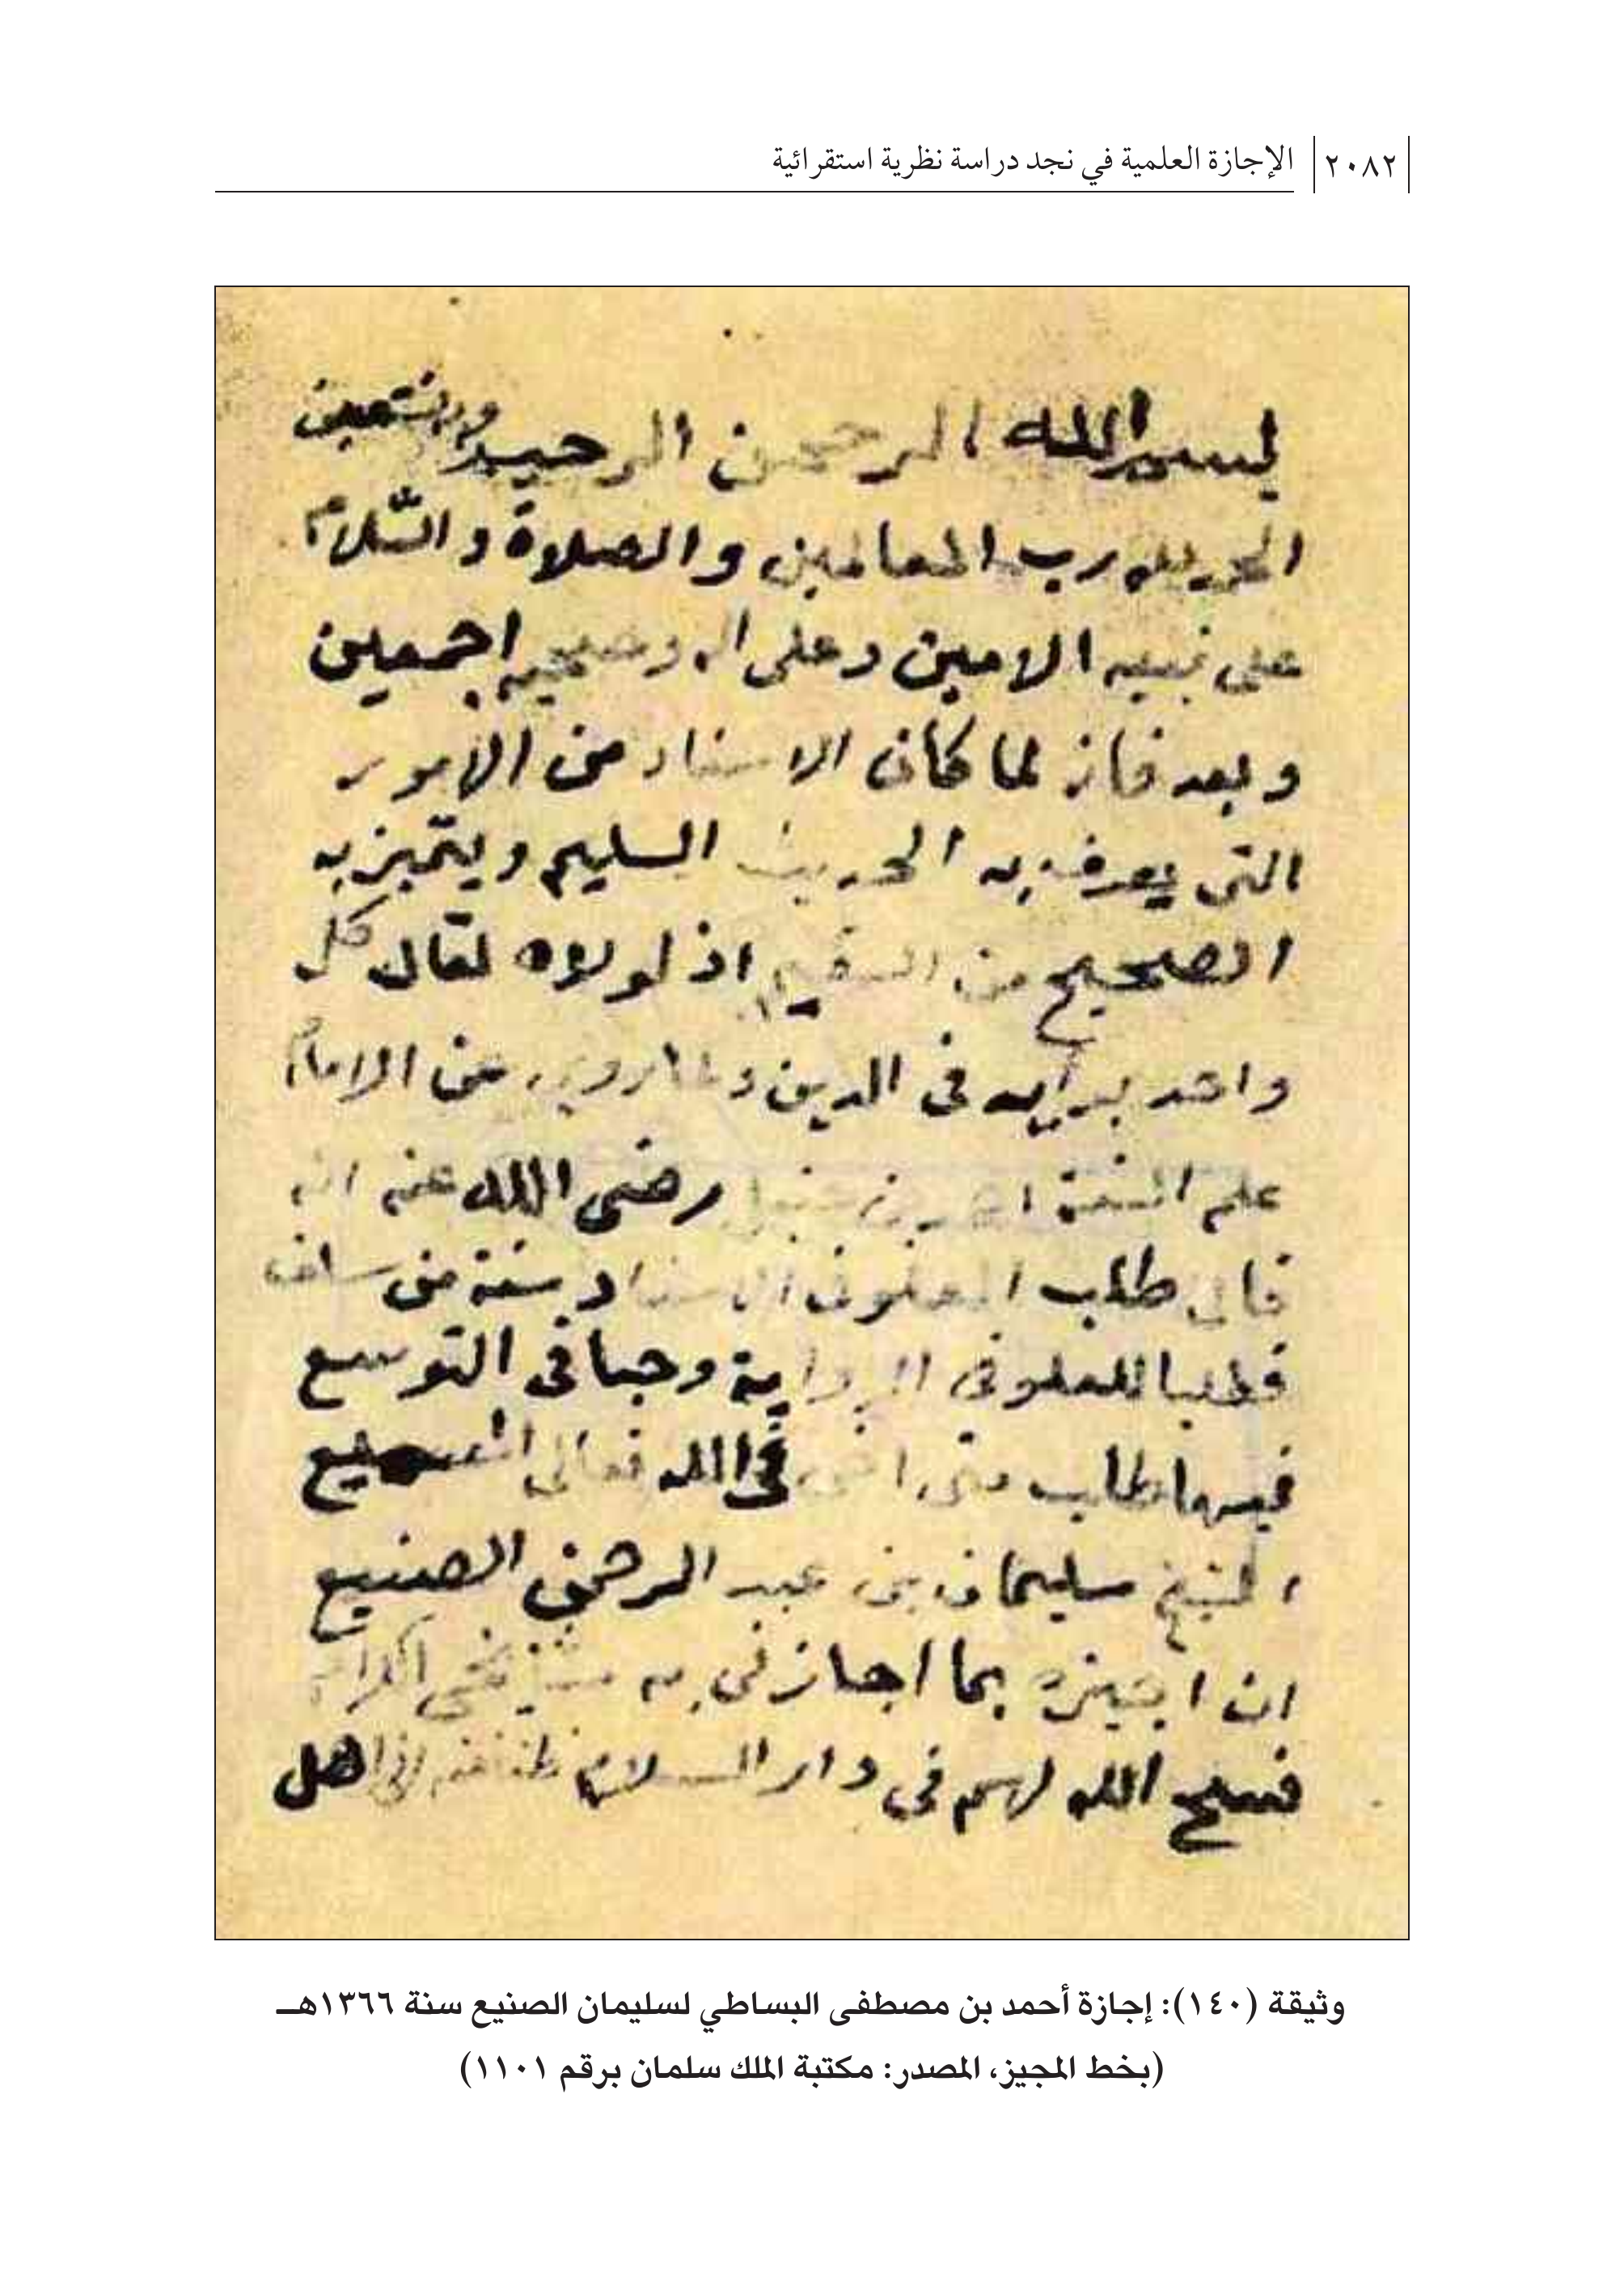 ٢٠٨٢ الإجازة العلمية في نجد دراسة نظرية استقرائية
بسم الله الرحمن الرحيم وبه نستعين
الحمد لله رب العالمين والصلاة والسّلام
على نبيه الامين وعلى اله وصحبه اجمعين
وبعد فان لما كان الاسناد من الامور
التى يعرف به الحديث السليم ويتميز به
الصحيح من السقيم اذ لولاه لقال كل
واحد برأيه فى الدين ولما روي عن الامام
علم السنة احمد بن حنبل رضى الله عنه انه
قال طلب العلو فى الاسناد سنة من سلف
فطلبا للعلو فى الرواية وحبا فى التوسع
فيها طلب منى اخى فى الله تعالى
الشيخ سليمان بن عبد الرحمن الصنيع
ان اجيزه بما اجازنى به مشائخى الكرام
فسح الله لهم فى دار السلام ظنا منه انى اهل
وثيقة (١٤٠): إجازة أحمد بن مصطفى البساطي لسليمان الصنيع سنة ١٣٦٦هـ
(بخط المجيز، المصدر: مكتبة الملك سلمان برقم ١١٠١)